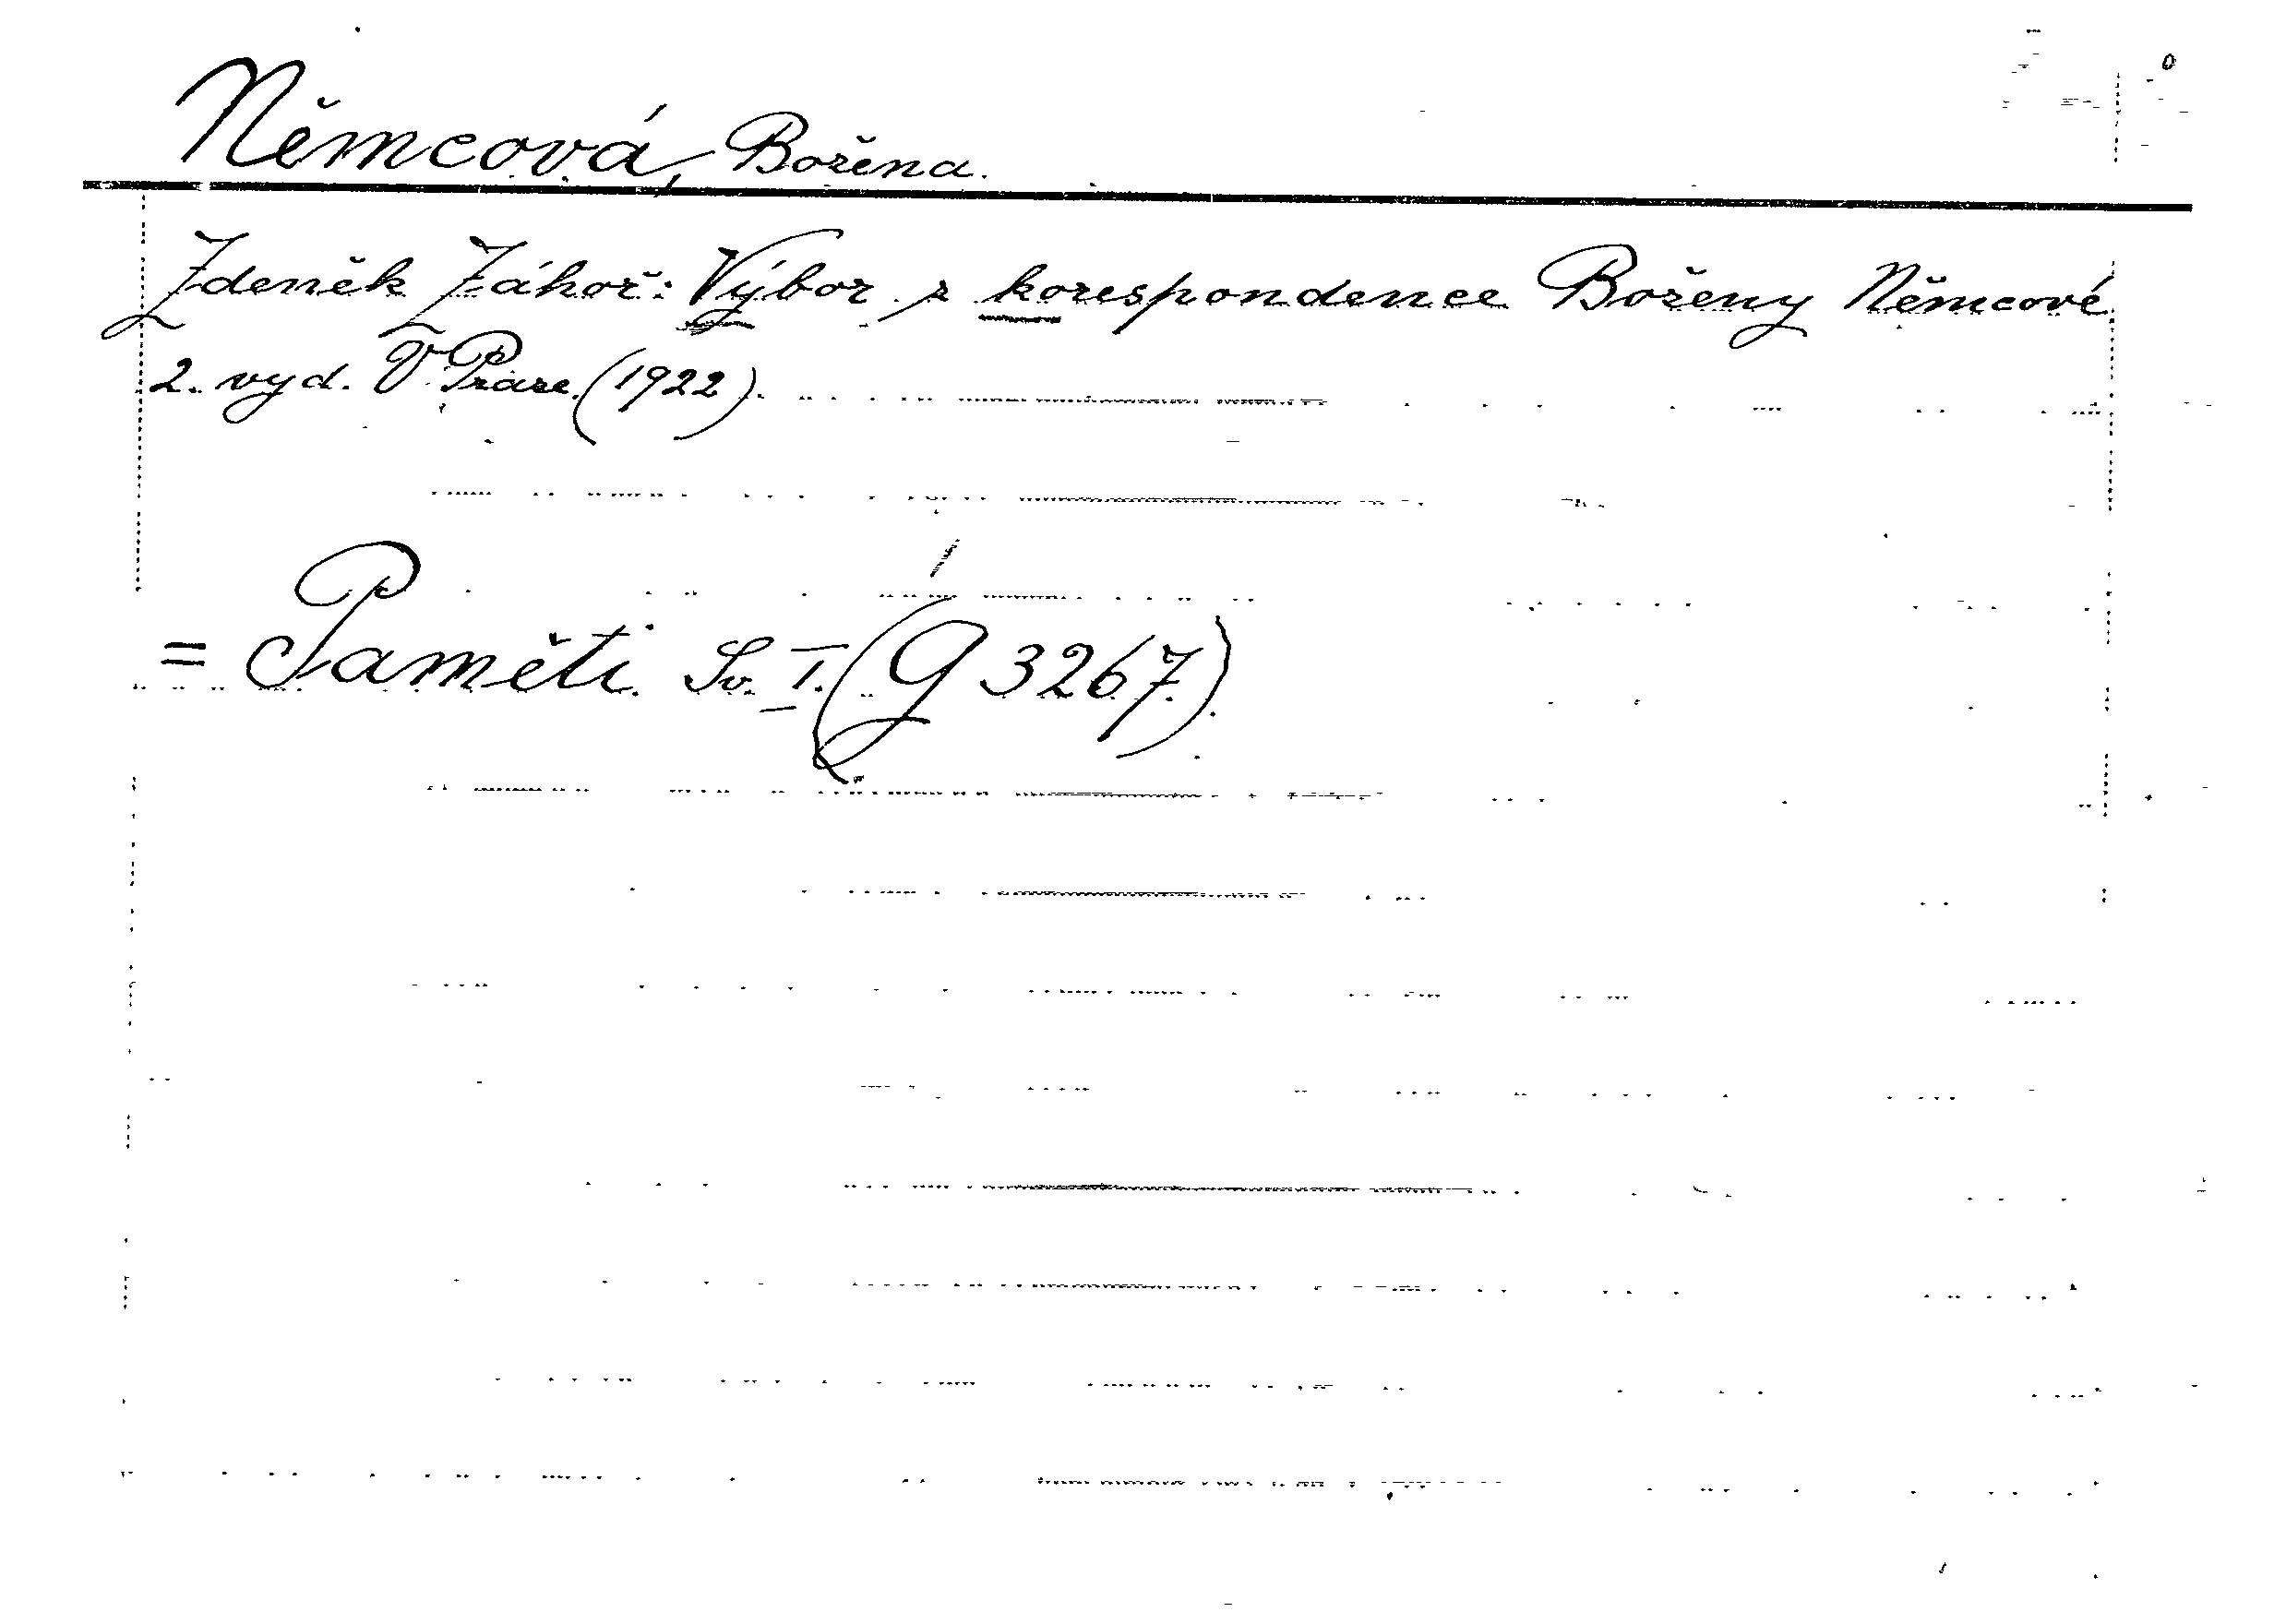 Němcová, Božena.
Zdeněk Záhoř: Výbor z korespondence Boženy Němcové
2. vyd. V Praze (1922).
= Paměti. Sv. I. (G 3267).